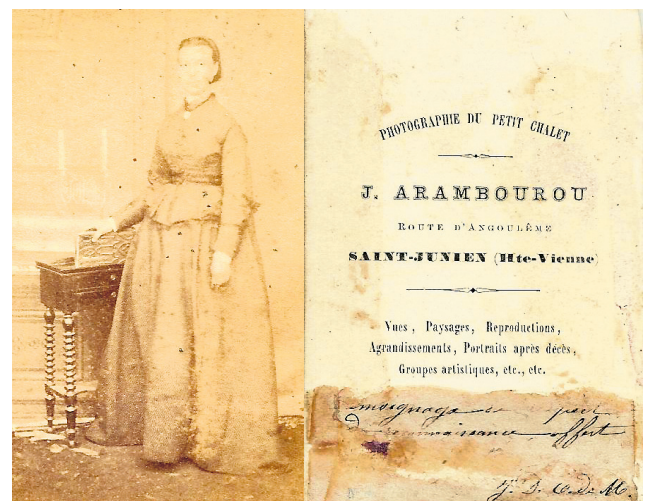 PHOTOGRAPHIE DU PETIT CHALET
J. ARAMBOUROU
ROUTE D'ANGOULÊME
SAINT-JUNIEN (Hte-Vienne)
Vues, Paysages, Reproductions,
Agrandissements, Portraits après décès,
Groupes artistiques, etc., etc.
moignage
offert